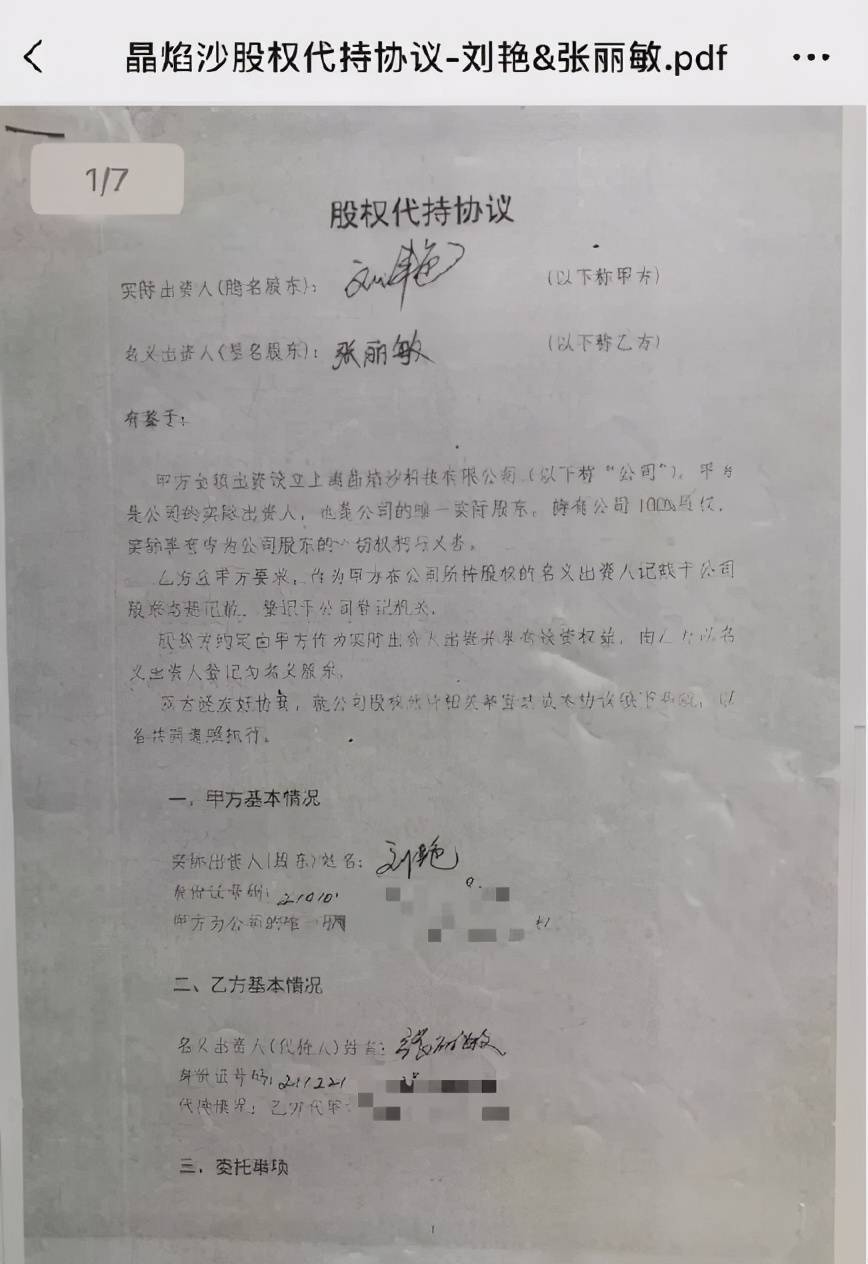 晶焰沙股权代持协议-刘艳&张丽敏.pdf
1/7
股权代持协议
实际出资人(隐名股东): 刘艳 (以下称甲方)
名义出资人(显名股东): 张丽敏 (以下称乙方)
有鉴于:
甲方全额出资设立上海晶焰沙科技有限公司(以下称“公司”)。甲方
是公司的实际出资人,也是公司的唯一实际股东。拥有公司100%股权,
实际享有作为公司股东的一切权利与义务。
乙方应甲方要求,作为甲方在公司所持股权的名义出资人记载于公司
股东 登记于公司登记机关。
约定由甲方作为实际出资人出资并享有投资权益,由乙方以名
义出资人登记为名义股东。
双方经友好协商,就公司股权代持相关事宜
各共同遵照执行。
一、甲方基本情况
实际出资人(股东)姓名: 刘艳
身份证号码: 21010
甲方为公司的唯一
二、乙方基本情况
名义出资人(代持人)姓名: 张丽敏
身份证号码: 211221
代持情况: 乙方代甲
三、委托事项
1